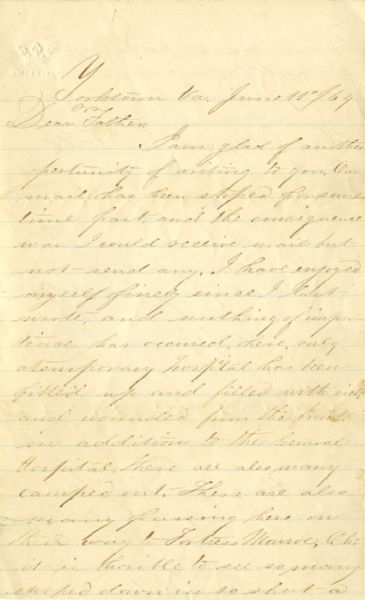 Yorktown Va. June 11th/64
Dear Father,
I am glad of another
oportunity of writing to you Our
mail has been stoped for some
time past and the consequence
was I could receive mail but
not send any. I have enjoyed
myself finely since I last
wrote, and nuthing of impor
tance has occured, here, only
a temporary hospital has been
fitted up and filled with sick
and wounded from the front
in addition to the General
Hospital, there are also many
camped out. There are also
many passing here on
their way to Fortress Monroe, Oh!
it is horible to see so many
sweped down in so short a